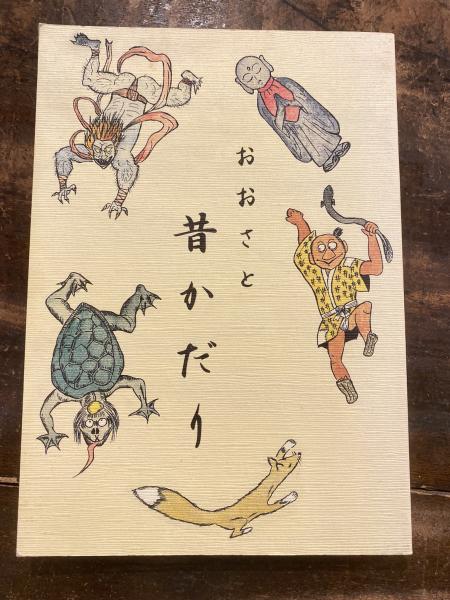 おおさと
昔かだり